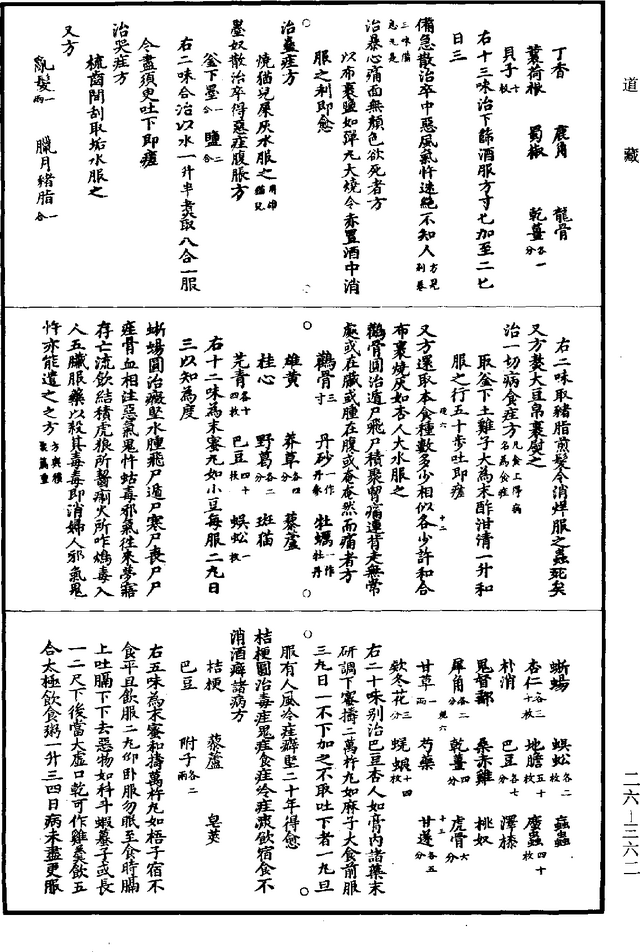 道藏
丁香　鹿角　龍骨
蘘荷根　蜀椒　乾薑各一分
貝子十枚
右十三味治下篩酒服方寸匕加至二匕
日三
備急散治卒中惡風氣忤迷絕不知人方見別卷
三味備急丸是
治暴心痛面無顏色欲死者方
以布裹鹽如彈丸大燒令赤置酒中消
服之利即愈
治蠱疰方
燒猫兒屎灰水服之用雄猫兒
墨奴散治卒得惡疰腹脹方
釜下墨一合　鹽二合
右二味合治以水一升半煮取八合一服
令盡須臾吐下即瘥
治哭疰方
梳齒間刮取垢水服之
又方
亂髮一兩　臘月緒脂一合
右二味取緒脂煎髮令消烊服之蟲死矣
又方熬大豆帛裹熨之
治一切病食疰方凡食上得病名為食疰
取釜下土雞子大為末酢泔清一升和
服之行五十步吐即瘥
又方還取本食種數多少相似各少許和合
布裹燒灰如杏人大水服之
鸛骨圓治遁尸飛尸積聚胷痛連背走無常
處或在臟或腫在腹或奄奄然而痛者方
鸛骨三寸　丹砂一作丹參　牡蠣一作牡丹
雄黄　莽草各四分　藜蘆
桂心　野葛各二分　斑猫
芫青各十四枚　巴豆四十枚　蜈蚣一枚
右十二味為末蜜丸如小豆每服二丸日
三以知為度
蜥蜴圓治癥堅水腫飛尸遁尸寒尸喪尸尸
疰骨血相注惡氣鬼忤蛄毒邪氣往來夢寤
存亡流飲結積虎狼所齧猘犬所咋鴆毒入
人五臟服藥以殺其毒毒即消婦人邪氣鬼
忤亦能遣之之方
蜥蜴　蜈蚣各二枚　蝱蟲
杏仁各三十枚　地膽五十枚　䗪蟲四十枚
朴消　巴豆各七分　澤漆
鬼督郵　桑赤雞　桃奴
犀角各二分　乾薑四分　虎骨六分
甘草一兩　芍藥　甘遂各五分
欵冬花三分　蜣蜋十四枚
右二十味别治巴豆杏人如膏内諸藥末
研調下蜜擣二萬杵丸如麻子大食前服
三丸日一不下加之不取吐下者一丸日
服有人風冷疰癖堅二十年得愈
桔梗圓治毒疰鬼疰食疰冷疰痰飲宿食不
消酒癖諸病方
桔梗　藜蘆　皂莢
巴豆　附子各二兩
右五味為末蜜和擣萬杵丸如梧子宿不
食平旦飲服二丸仰卧服勿眠至食時膈
上吐膈下下去惡物如科斗蝦蟇子或長
一二尺下後當大虚口乾可作雞羹飲五
合太極飲食粥一升三四日病未盡更服
二六—三六二